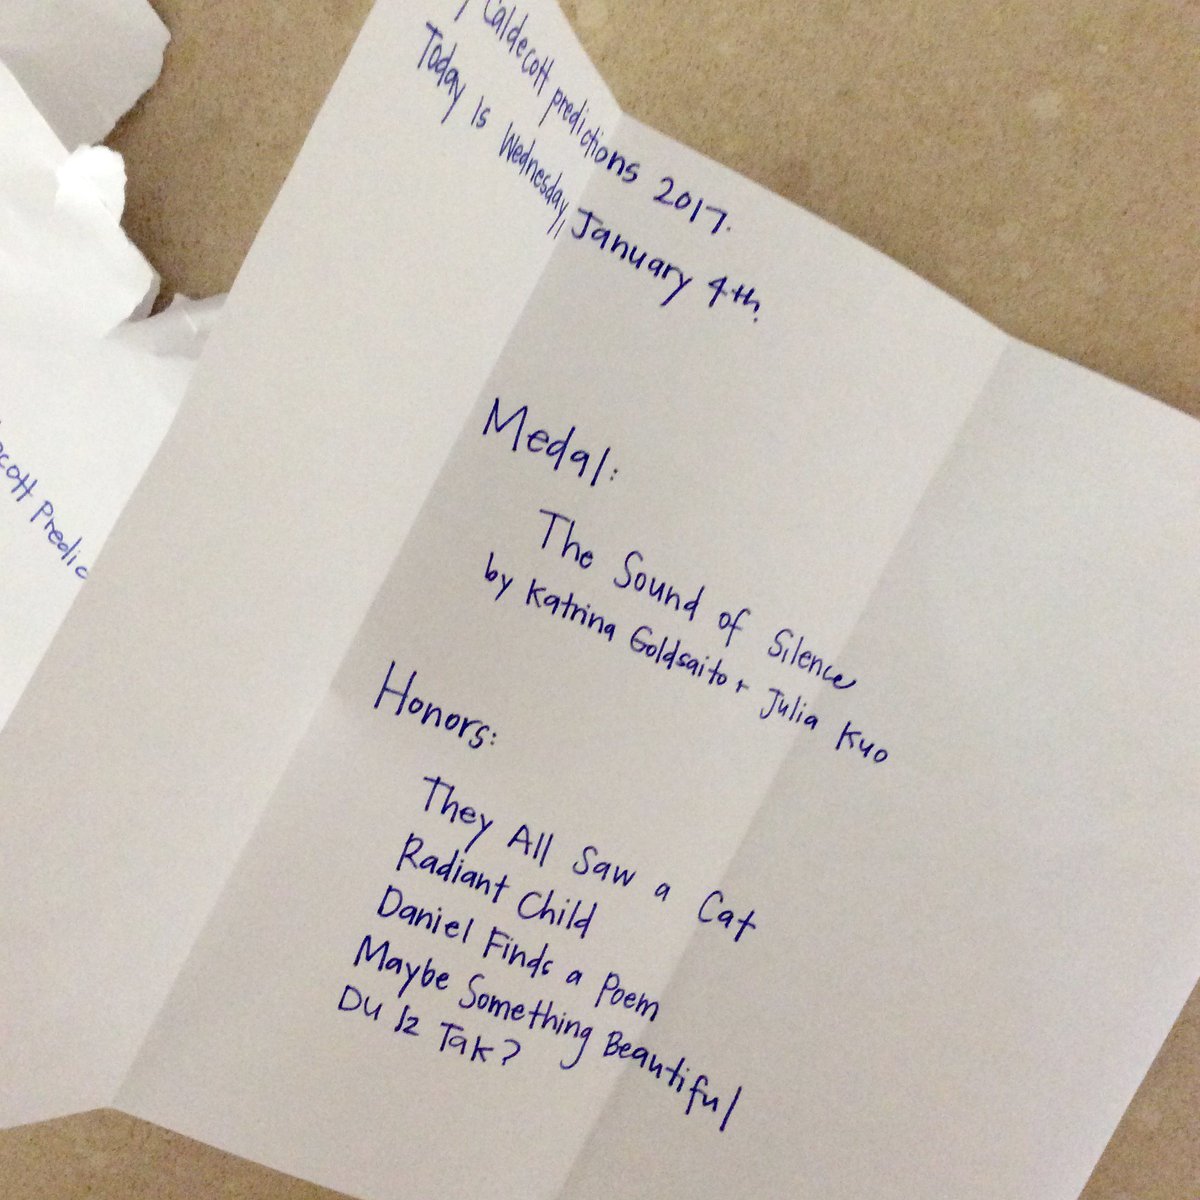 Caldecott predictions 2017.
Today is Wednesday, January 4th.
Medal:
The Sound of Silence
by Katrina Goldsaito + Julia Kuo
Honors:
They All Saw a Cat
Radiant Child
Daniel Finds a Poem
Maybe Something Beautiful
Du Iz Tak?
ecott Predic